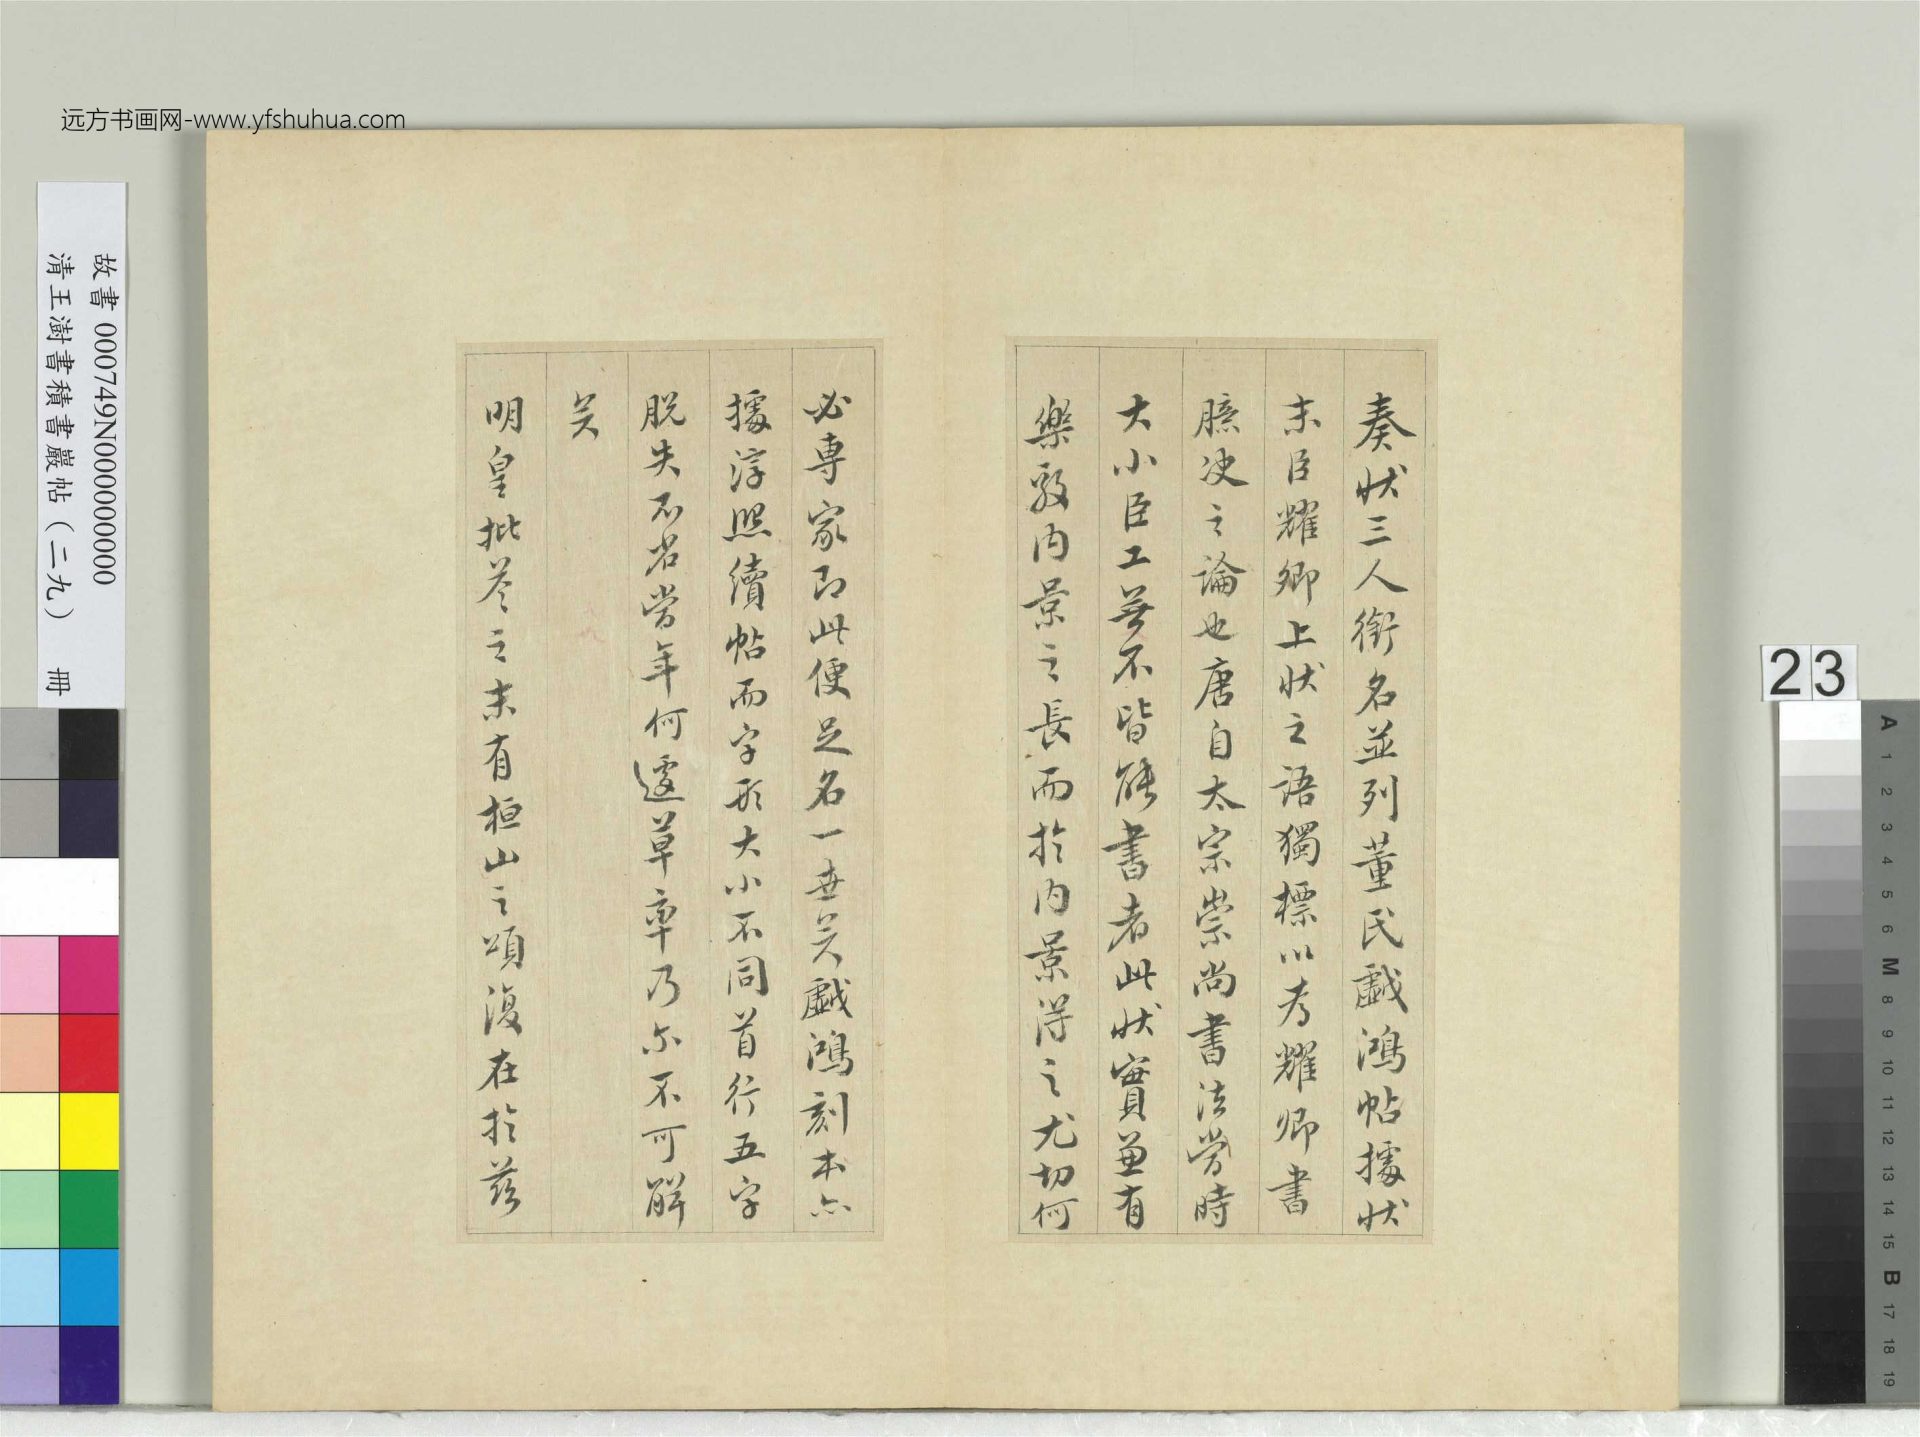 远方书画网-www.yfshuhua.com
奏狀三人銜名並列董氏戲鴻帖據狀
末臣耀卿上狀之語獨標以為耀卿書
臆決之論也唐自太宗崇尚書法當時
大小臣工無不皆能書者此狀實兼有
樂毅內景之長而於內景得之尤切何
必專家即此便足名一世矣戲鴻刻本亦
據淳熙續帖而字形大小不同首行五字
脫失不省當年何遽草率乃爾不可解
矣
明皇批答之末有桓山之頌復在於茲
故書 000749N000000000
清王澍書積書巖帖（二九） 冊
23
A
1
2
3
4
5
6
M
8
9
10
11
12
13
14
15
B
17
18
19